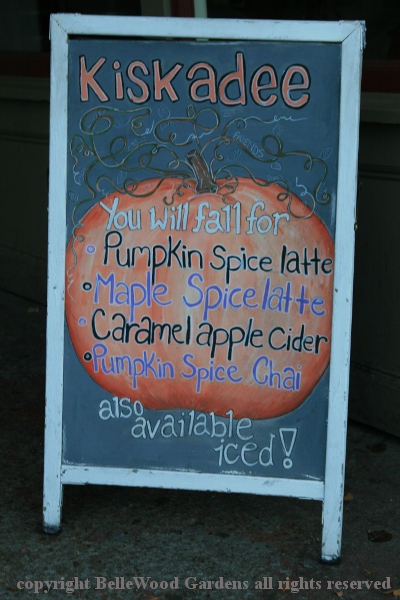 Kiskadee
You will fall for
Pumpkin Spice latte
Maple Spice latte
Caramel apple Cider
Pumpkin Spice Chai
also
available
iced!
copyright BelleWood Gardens all rights reserved